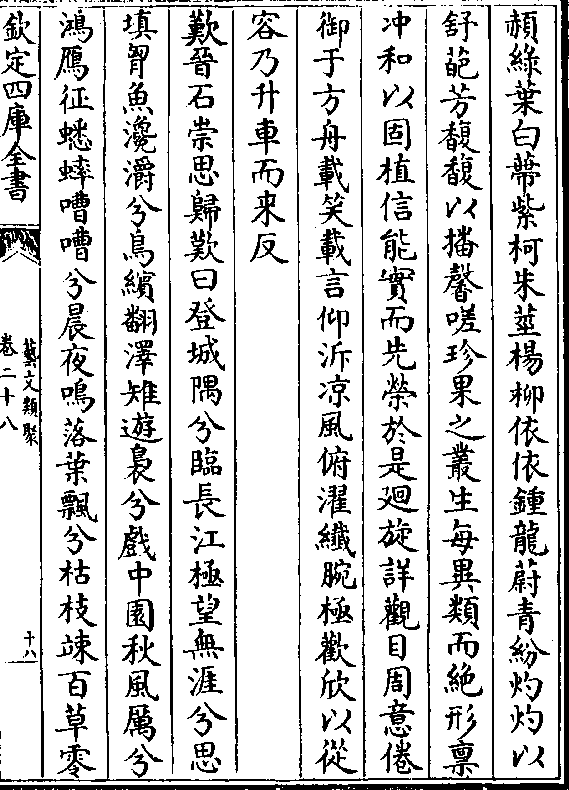 頳綠葉白蔕紫柯朱莖楊柳依依鍾龍蔚青紛灼灼以
舒葩芳馥馥以播馨嗟珍果之叢生每異類而絶形禀
冲和以固植信能實而先榮於是廻旋詳觀目周意倦
御于方舟載笑載言仰泝凉風俯濯纎腕極歡欣以從
容乃升車而来反
歎晉石崇思歸歎曰登城隅兮臨長江極望無涯兮思
填胷魚瀺灂兮鳥繽翻澤雉遊裊兮戲中園秋風厲兮
鴻鴈征蟋蟀嘈嘈兮晨夜鳴落葉飄兮枯枝竦百草零
欽定四庫全書
藝文類聚
卷二十八
十八